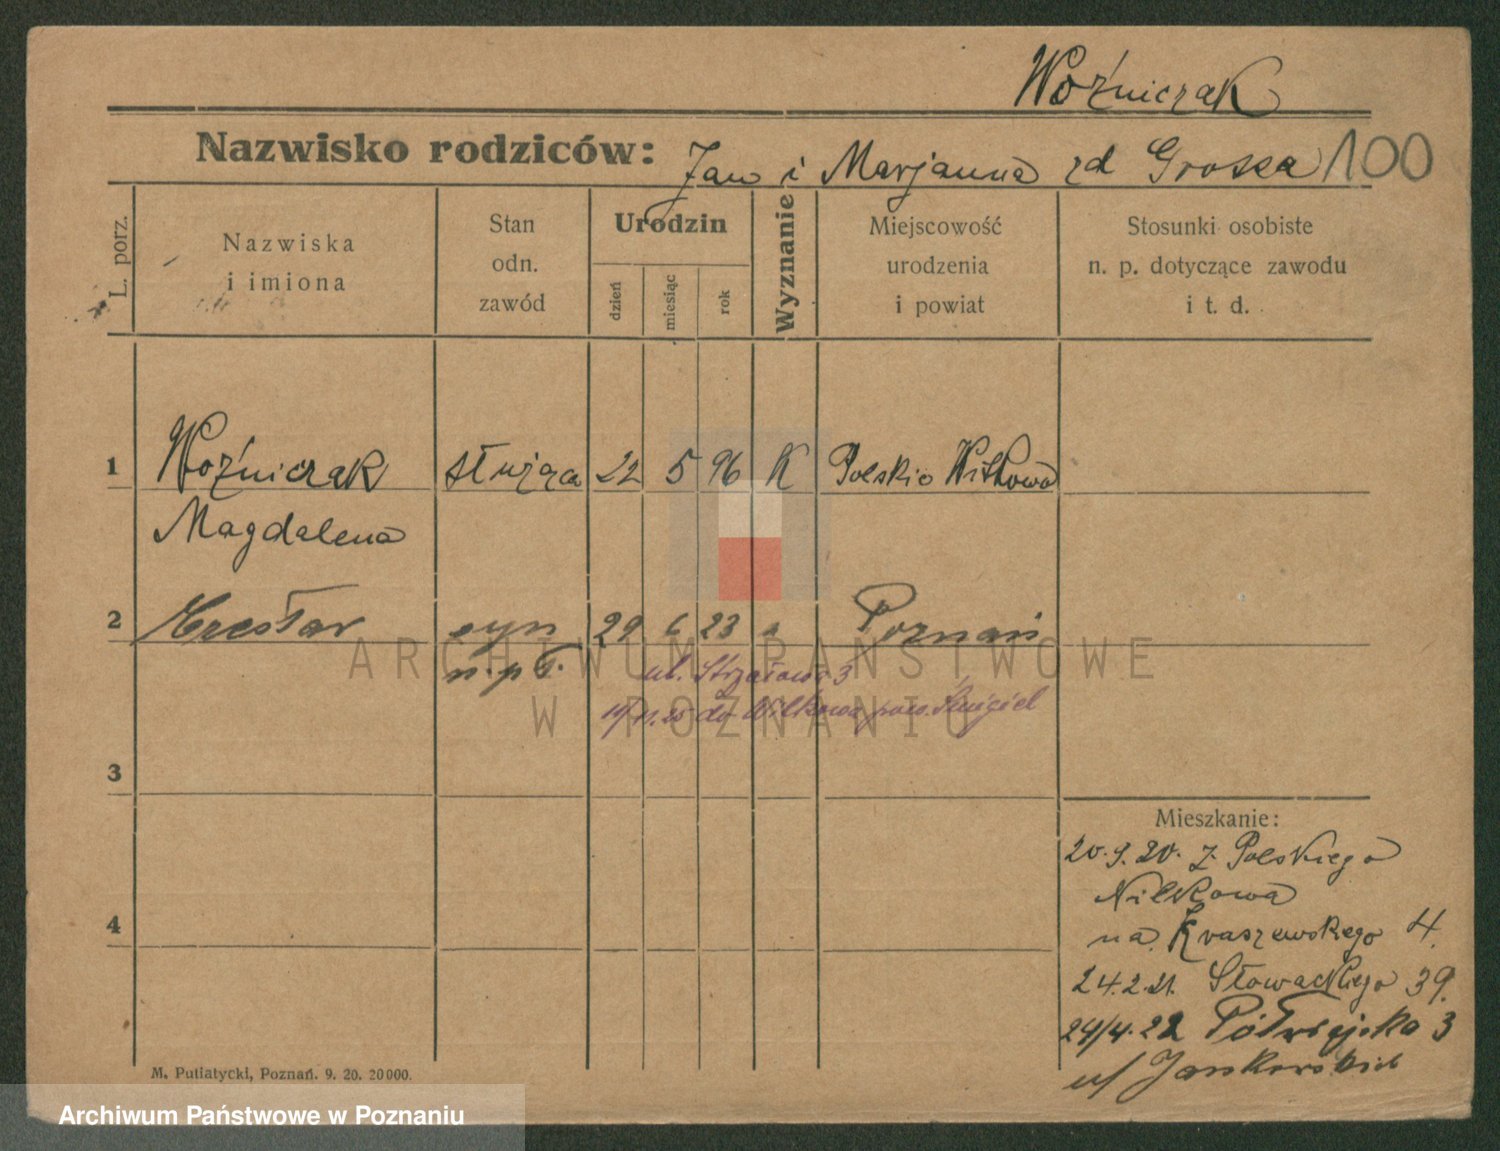 Woźniczak
Nazwisko rodziców: Jan i Marjanna zd Grossa 100
L. porz.
Nazwiska
i imiona
Stan
odn.
zawód
Urodzin
dzień
miesiąc
rok
Wyznanie
Miejscowość
urodzenia
i powiat
Stosunki osobiste
n. p. dotyczące zawodu
i t. d.
1 Woźniczak służąca 22 5 96 K Polskie Wilkowo
Magdalena
2 Czesław syn 29 6 23 Poznań
ul. Strzałowa 3
do Wilkowa pow. Śmigiel
3
4
Mieszkanie:
20.9.20. z Polskiego
Wilkowa
na Kraszewskiego 4.
24.2.21. Słowackiego 39.
24/4.22 Półwiejska 3
u/ Jankowskich
M. Putiatycki, Poznań. 9. 20. 20000.
ARCHIWUM PAŃSTWOWE
W POZNANIU
Archiwum Państwowe w Poznaniu